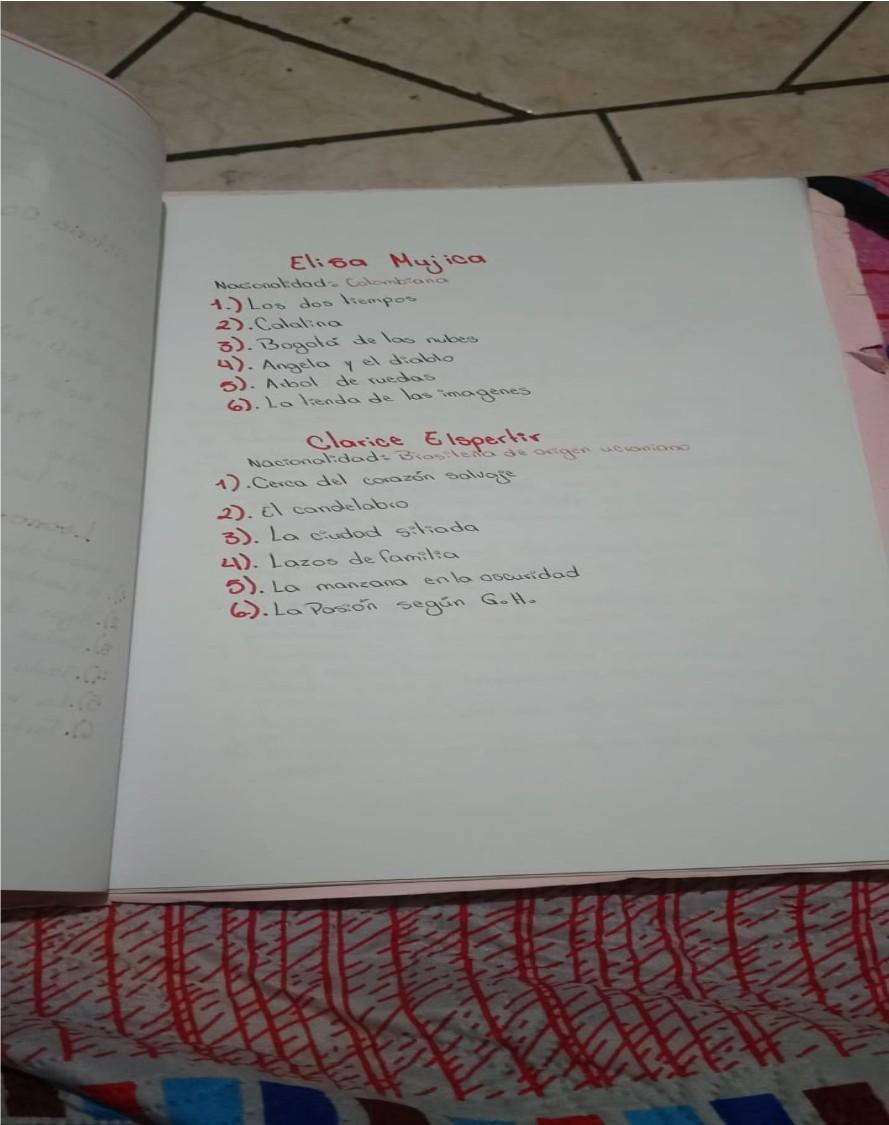 Elisa Mujica
Nacionalidad: Colombiana
1.) Los dos tiempos
2). Catalina
3). Bogotá de las nubes
4). Angela y el diablo
5). Arbol de ruedas
6). La tienda de las imagenes
Clarice Elspertir
Nacionalidad: Brasileña de origen ucraniano
1). Cerca del corazón salvaje
2). El candelabro
3). La ciudad sitiada
4). Lazos de familia
5). La manzana en la oscuridad
6). La Pasión según G.H.